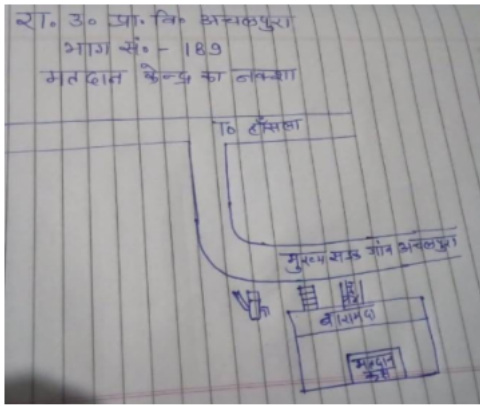 रा. उ. प्रा. वि. अचलपुरा
भाग सं. - 189
मतदान केन्द्र का नक्शा
To
मुख्य सड़क गांव अचलपुरा
बारामदा
मतदान
कक्ष